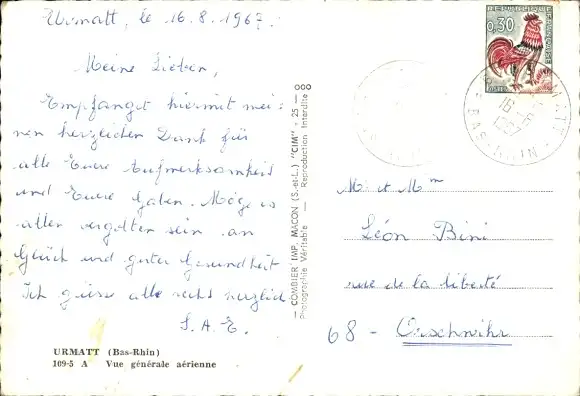 Urmatt, le 16.8.1967.
Meine Lieben,
Empfanget hiermit mei-
nen herzlichen Dank für
alle Euere Aufmerksamkeit
und Euere Gaben. Möge es
allen vergolten sein an
Glück und guter Gesundheit
Ich grüsse alle recht herzlich
S.A.E.
URMATT (Bas-Rhin)
109-5 A Vue générale aérienne
— COMBIER IMP. MACON (S.-et-L.) "CIM" — 25 — ooo
Photographie Véritable — Reproduction Interdite
REPUBLIQUE
FRANÇAISE
0,30
URMATT
16
1967
BAS-RHIN
Mr et Mme
Léon Bini
rue de la liberté
68 - Orschwihr